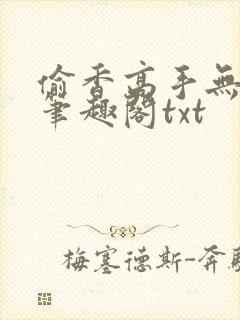 偷香高手無
筆趣閣txt
梅塞德斯-奔馳